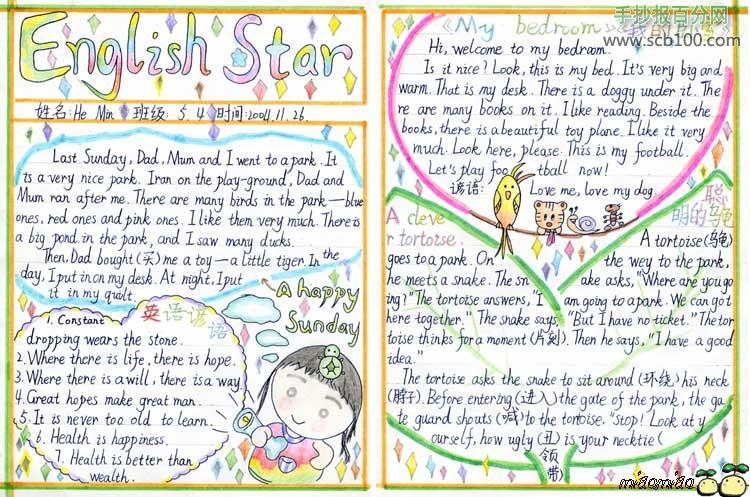 English Star
姓名: He Min 班级: 5.4 时间: 2004.11.26.
Last Sunday, Dad, Mum and I went to a park. It
is a very nice park. I ran on the play-ground, Dad and
Mum ran after me. There are many birds in the park—blue
ones, red ones and pink ones. I like them very much. There is
a big pond in the park, and I saw many ducks.
Then, Dad bought(买) me a toy—a little tiger. In the
day, I put in on my desk. At night, I put
it in my quilt.
A happy
Sunday
英语谚语
1. Constant
dropping wears the stone.
2. Where there is life, there is hope.
3. Where there is a will, there is a way
4. Great hopes make great man.
5. It is never too old to learn.
6. Health is happiness.
7. Health is better than
wealth.
手抄报百分网
www.scb100.com
《My bedroom》
Hi, welcome to my bedram.
Is it nice? Look, this is my bed. It's very big and
warm. That is my desk. There is a doggy under it. The
re are many books on it. I like reading. Beside the
books, there is a beautiful toy plane. I like it very
much. Look here, please. This is my football.
Let's play foo tball now!
谚语: Love me, love my dog.
聪
明的乌龟
A cleve
r tortoise.
A tortoise(乌龟)
goes to a park. On the wey to the park,
he meets a snake. The sn ake asks, "Where are you go
ing?" The tortoise answers, "I am going to a park. We can got
here together." The snake says, "But I have no ticket." The tor
toise thinks for a moment (片刻). Then he says, "I have a good
idea."
The tortoise asks the snake to sit around (环绕) his neck
(脖子). Before entering (进入) the gate of the park, the ga
te guard shouts (喊) to the tortoise. "Stop! Look at y
ourself, how ugly (丑) is your necktie (
领
带)
miāomiāo